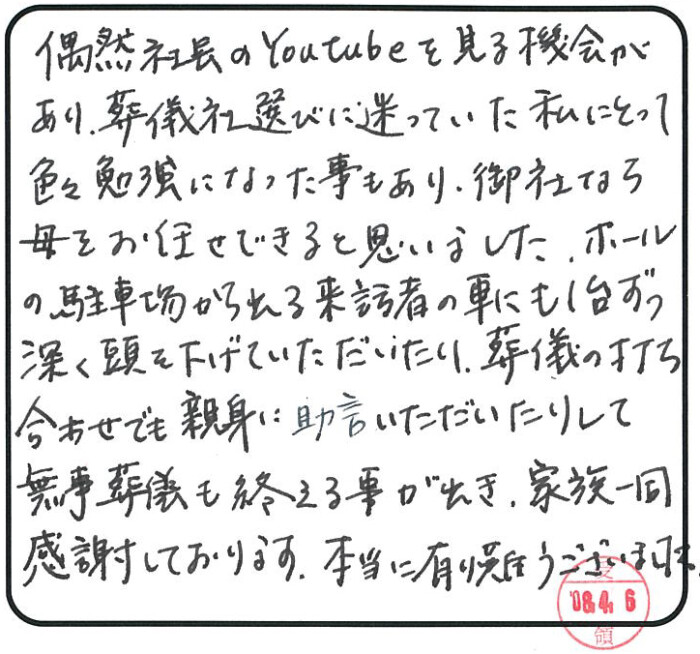 偶然社長のYoutubeを見る機会が
あり、葬儀社選びに迷っていた私にとって
色々勉強になった事もあり、御社なら
母をお任せできると思いました。ホール
の駐車場から出る来訪者の車にも1台ずつ
深く頭を下げていただいたり、葬儀の打ち
合わせでも親身に助言いただいたりして
無事葬儀も終える事が出き、家族一同
感謝しております。本当に有り難うございました。
受
'08.4.6
領